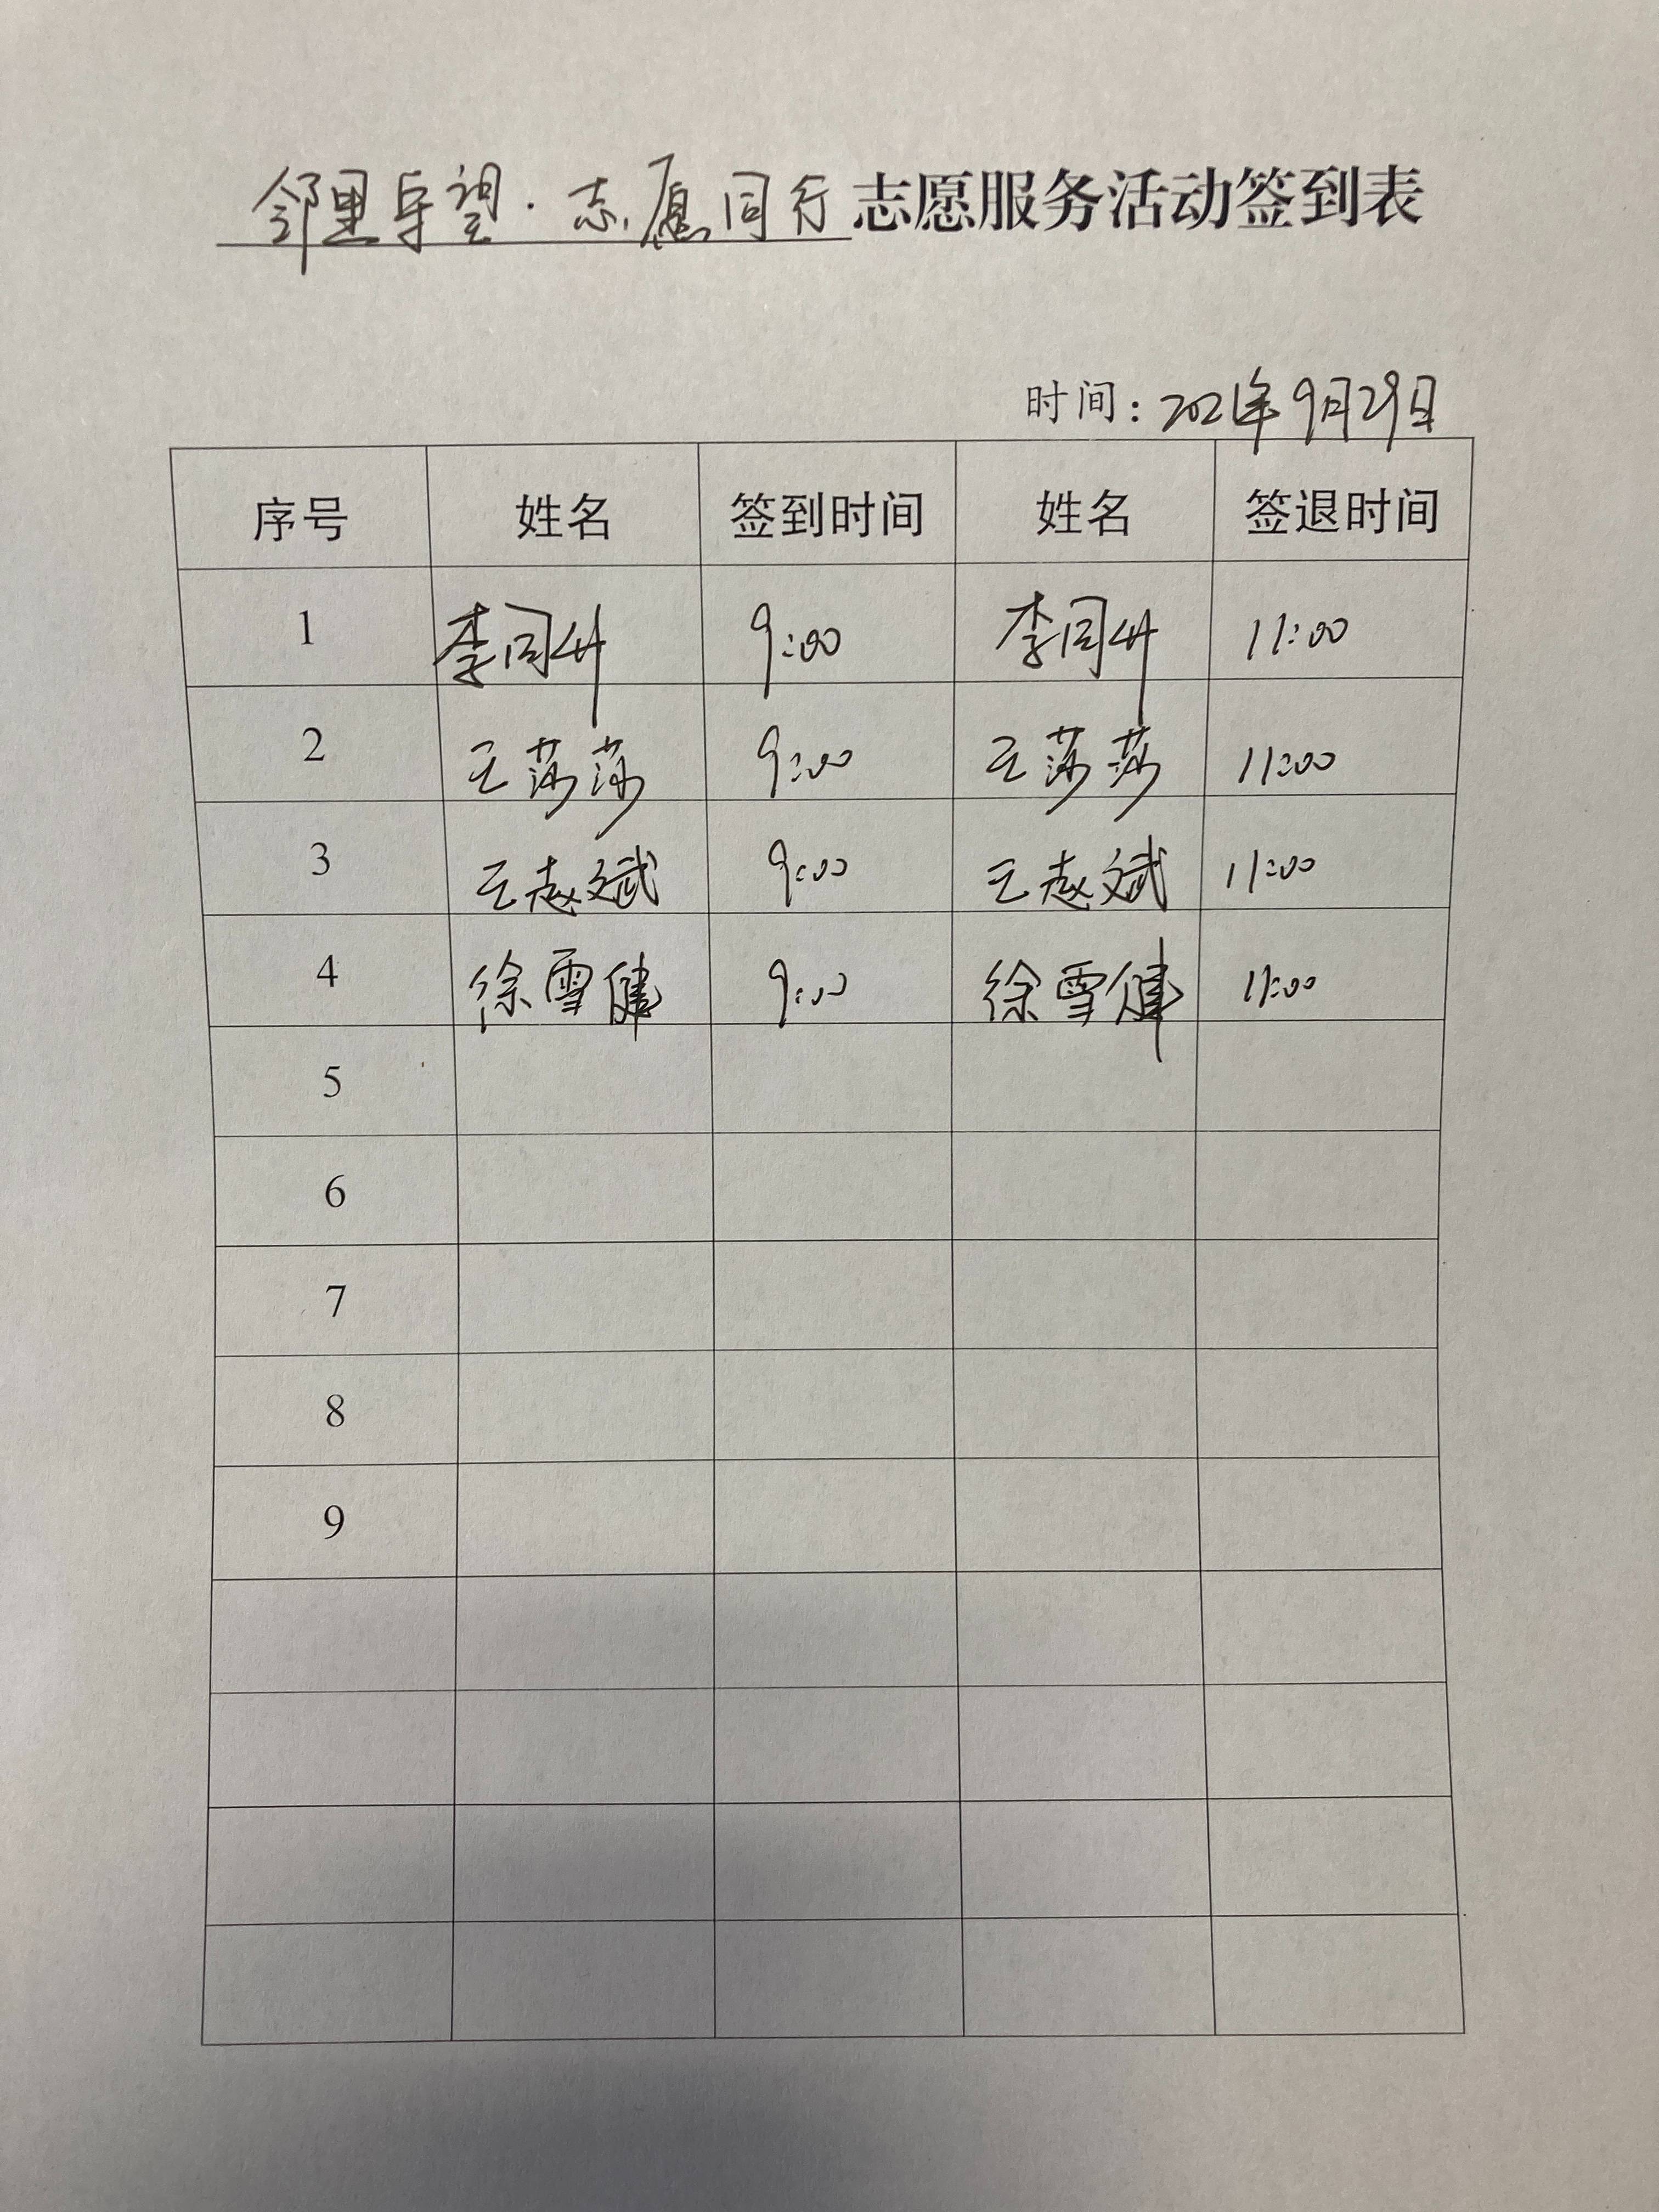 邻里守望·志愿同行志愿服务活动签到表
时间：2021年9月29日
序号 姓名 签到时间 姓名 签退时间
1 李同升 9:00 李同升 11:00
2 王莎莎 9:00 王莎莎 11:00
3 王赵斌 9:00 王赵斌 11:00
4 徐雪健 9:00 徐雪健 11:00
5
6
7
8
9